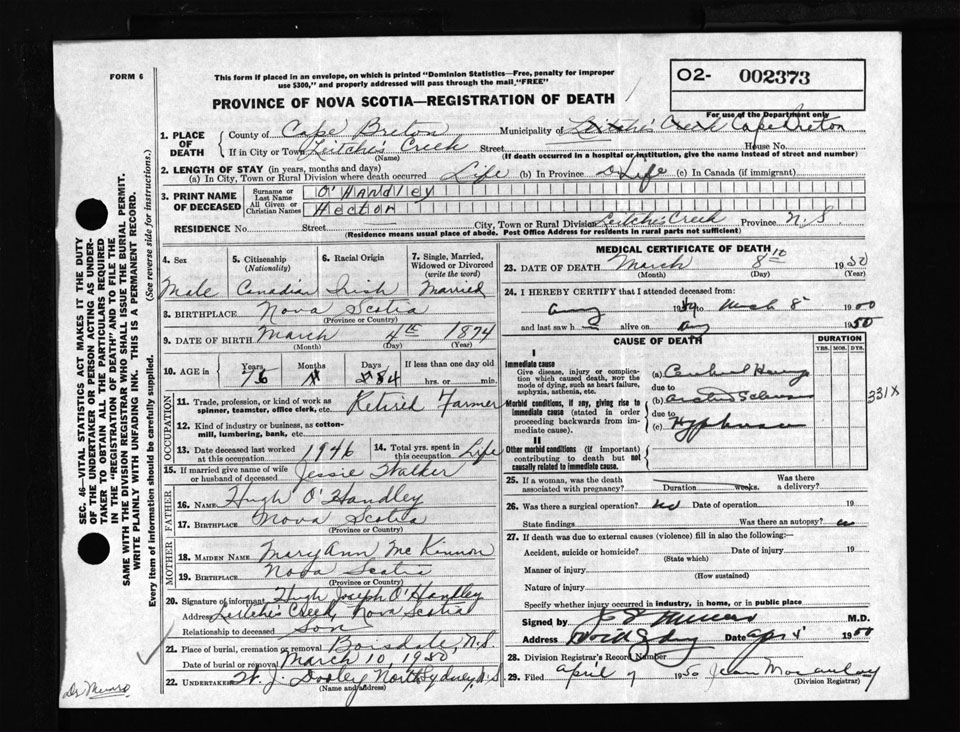 FORM 6
This form if placed in an envelope, on which is printed "Dominion Statistics—Free, penalty for improper
use $300," and properly addressed will pass through the mail "FREE"
O2- 002373
For use of the Department only
PROVINCE OF NOVA SCOTIA—REGISTRATION OF DEATH
1. PLACE OF DEATH
County of Cape Breton Municipality of Leitche's Creek Cape Breton
If in City or Town Leitche's Creek Street House No.
(Name) (If death occurred in a hospital or institution, give the name instead of street and number)
2. LENGTH OF STAY (in years, months and days)
(a) In City, Town or Rural Division where death occurred Life (b) In Province Life (c) In Canada (if immigrant)
3. PRINT NAME OF DECEASED
Surname or Last Name O'Handley
All Given or Christian Names Hector
RESIDENCE No. Street City, Town or Rural Division Leitche's Creek Province N.S
(Residence means usual place of abode. Post Office Address for residents in rural parts not sufficient)
4. Sex 5. Citizenship (Nationality) 6. Racial Origin 7. Single, Married, Widowed or Divorced (write the word)
Male Canadian Irish Married
8. BIRTHPLACE Nova Scotia
(Province or Country)
9. DATE OF BIRTH March 4th 1874
(Month) (Day) (Year)
10. AGE in Years Months Days If less than one day old
76 4 hrs. or min.
OCCUPATION
11. Trade, profession, or kind of work as spinner, teamster, office clerk, etc. Retired Farmer
12. Kind of industry or business, as cotton-mill, lumbering, bank, etc.
13. Date deceased last worked at this occupation 1946 14. Total yrs. spent in this occupation Life
15. If married give name of wife or husband of deceased Jessie Walker
FATHER
16. NAME Hugh O'Handley
17. BIRTHPLACE Nova Scotia
(Province or Country)
MOTHER
18. MAIDEN NAME Mary Ann McKinnon
19. BIRTHPLACE Nova Scotia
(Province or Country)
20. Signature of informant Hugh Joseph O'Handley
Address Leitche's Creek, Nova Scotia
Relationship to deceased Son
21. Place of burial, cremation or removal Boisdale, N.S.
Date of burial or removal March 10, 1950
22. UNDERTAKER W. J. Dooley North Sydney, N.S
(Name and address)
MEDICAL CERTIFICATE OF DEATH
23. DATE OF DEATH March 8th 1950
(Month) (Day) (Year)
24. I HEREBY CERTIFY that I attended deceased from:
19 to March 8 19
and last saw h alive on 1950
CAUSE OF DEATH DURATION
YRS. MOS. DYS.
I
Immediate cause
Give disease, injury or complication which caused death, NOT the mode of dying, such as heart failure, asphyxia, asthenia, etc.
(a)
due to
Morbid conditions, if any, giving rise to immediate cause (stated in order proceeding backwards from immediate cause).
(b)
due to
(c)
331X
II
Other morbid conditions (if important) contributing to death but not causally related to immediate cause.
25. If a woman, was the death associated with pregnancy? Duration weeks. Was there a delivery?
26. Was there a surgical operation? no Date of operation 19
State findings Was there an autopsy? no
27. If death was due to external causes (violence) fill in also the following:—
Accident, suicide or homicide? Date of injury 19
(State which)
Manner of injury
(How sustained)
Nature of injury
Specify whether injury occurred in industry, in home, or in public place
Signed by M.D.
Address North Sydney Date Apr 19
28. Division Registrar's Record Number
29. Filed April 9 1950 Jean
(Division Registrar)
SEC. 46—VITAL STATISTICS ACT MAKES IT THE DUTY
OF THE UNDERTAKER OR PERSON ACTING AS UNDER-
TAKER TO OBTAIN ALL THE PARTICULARS REQUIRED
IN THE "REGISTRATION OF DEATH" AND TO FILE THE
SAME WITH THE DIVISION REGISTRAR WHO SHALL ISSUE THE BURIAL PERMIT.
WRITE PLAINLY WITH UNFADING INK. THIS IS A PERMANENT RECORD.
Every item of information should be carefully supplied. (See reverse side for instructions.)
Dr Munro